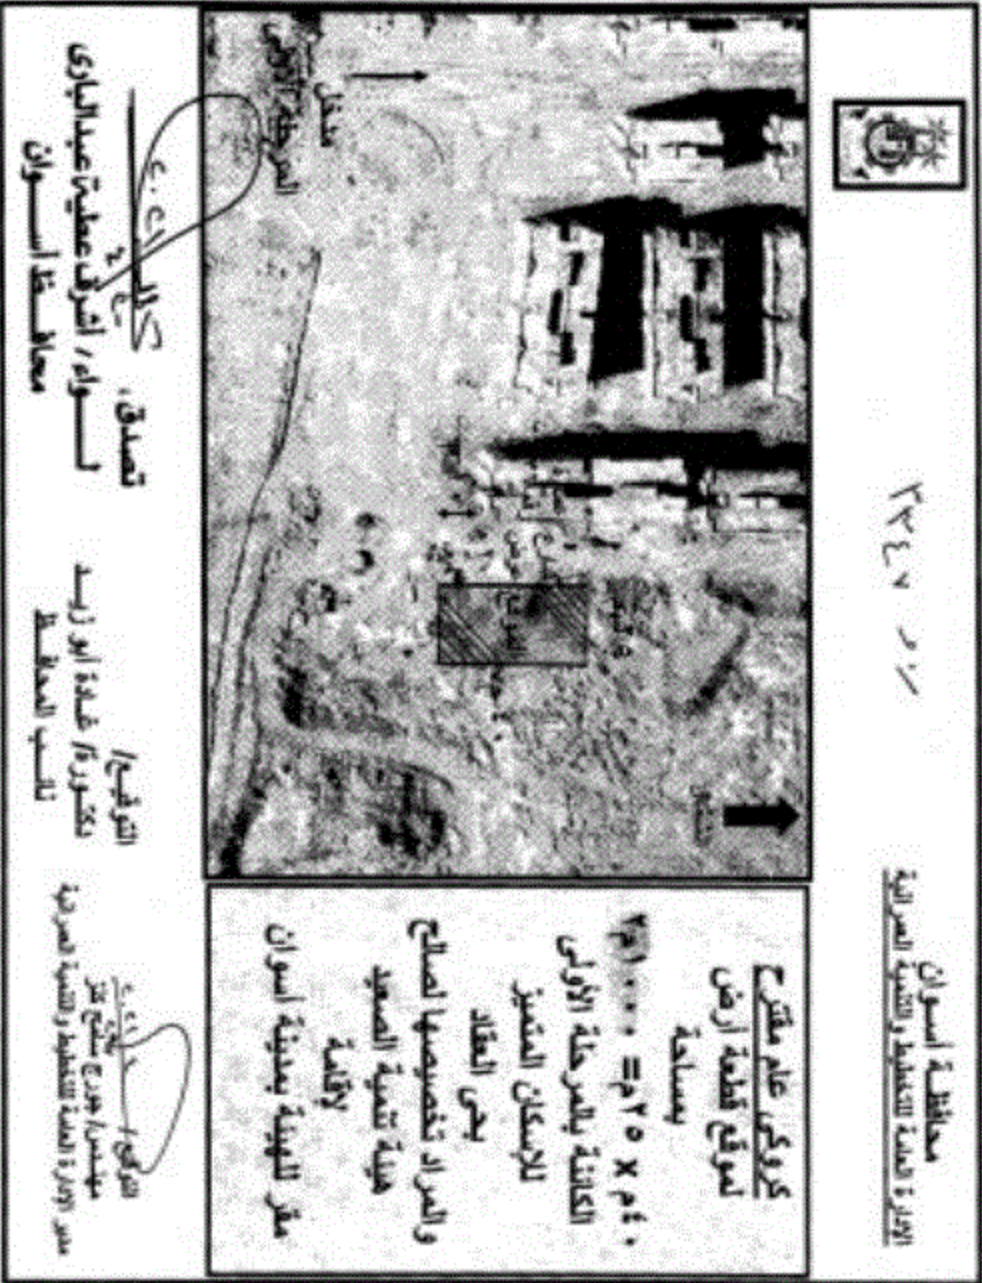 محافظة أسوان
الإدارة العامة للتخطيط والتنمية العمرانية
كروكى عام مقترح
لموقع قطعة أرض
بمساحة
٤٠م × ٢٥م = ١٠٠٠م٢
الكائنة بالمرحلة الأولى
للإسكان المتميز
بحى العقاد
والمراد تخصيصها لصالح
هيئة تنمية الصعيد
لإقامة
مقر للهيئة بمدينة أسوان
مدخل
المرحلة الأولى
التوقيع/
مهندس/ جورج
مدير الإدارة العامة للتخطيط والتنمية العمرانية
التوقيع/
دكتورة/ غادة أبو زيد
نائب المحافظ
تصدق،
لواء/ أشرف عطية عبدالبارى
محافظ أسوان